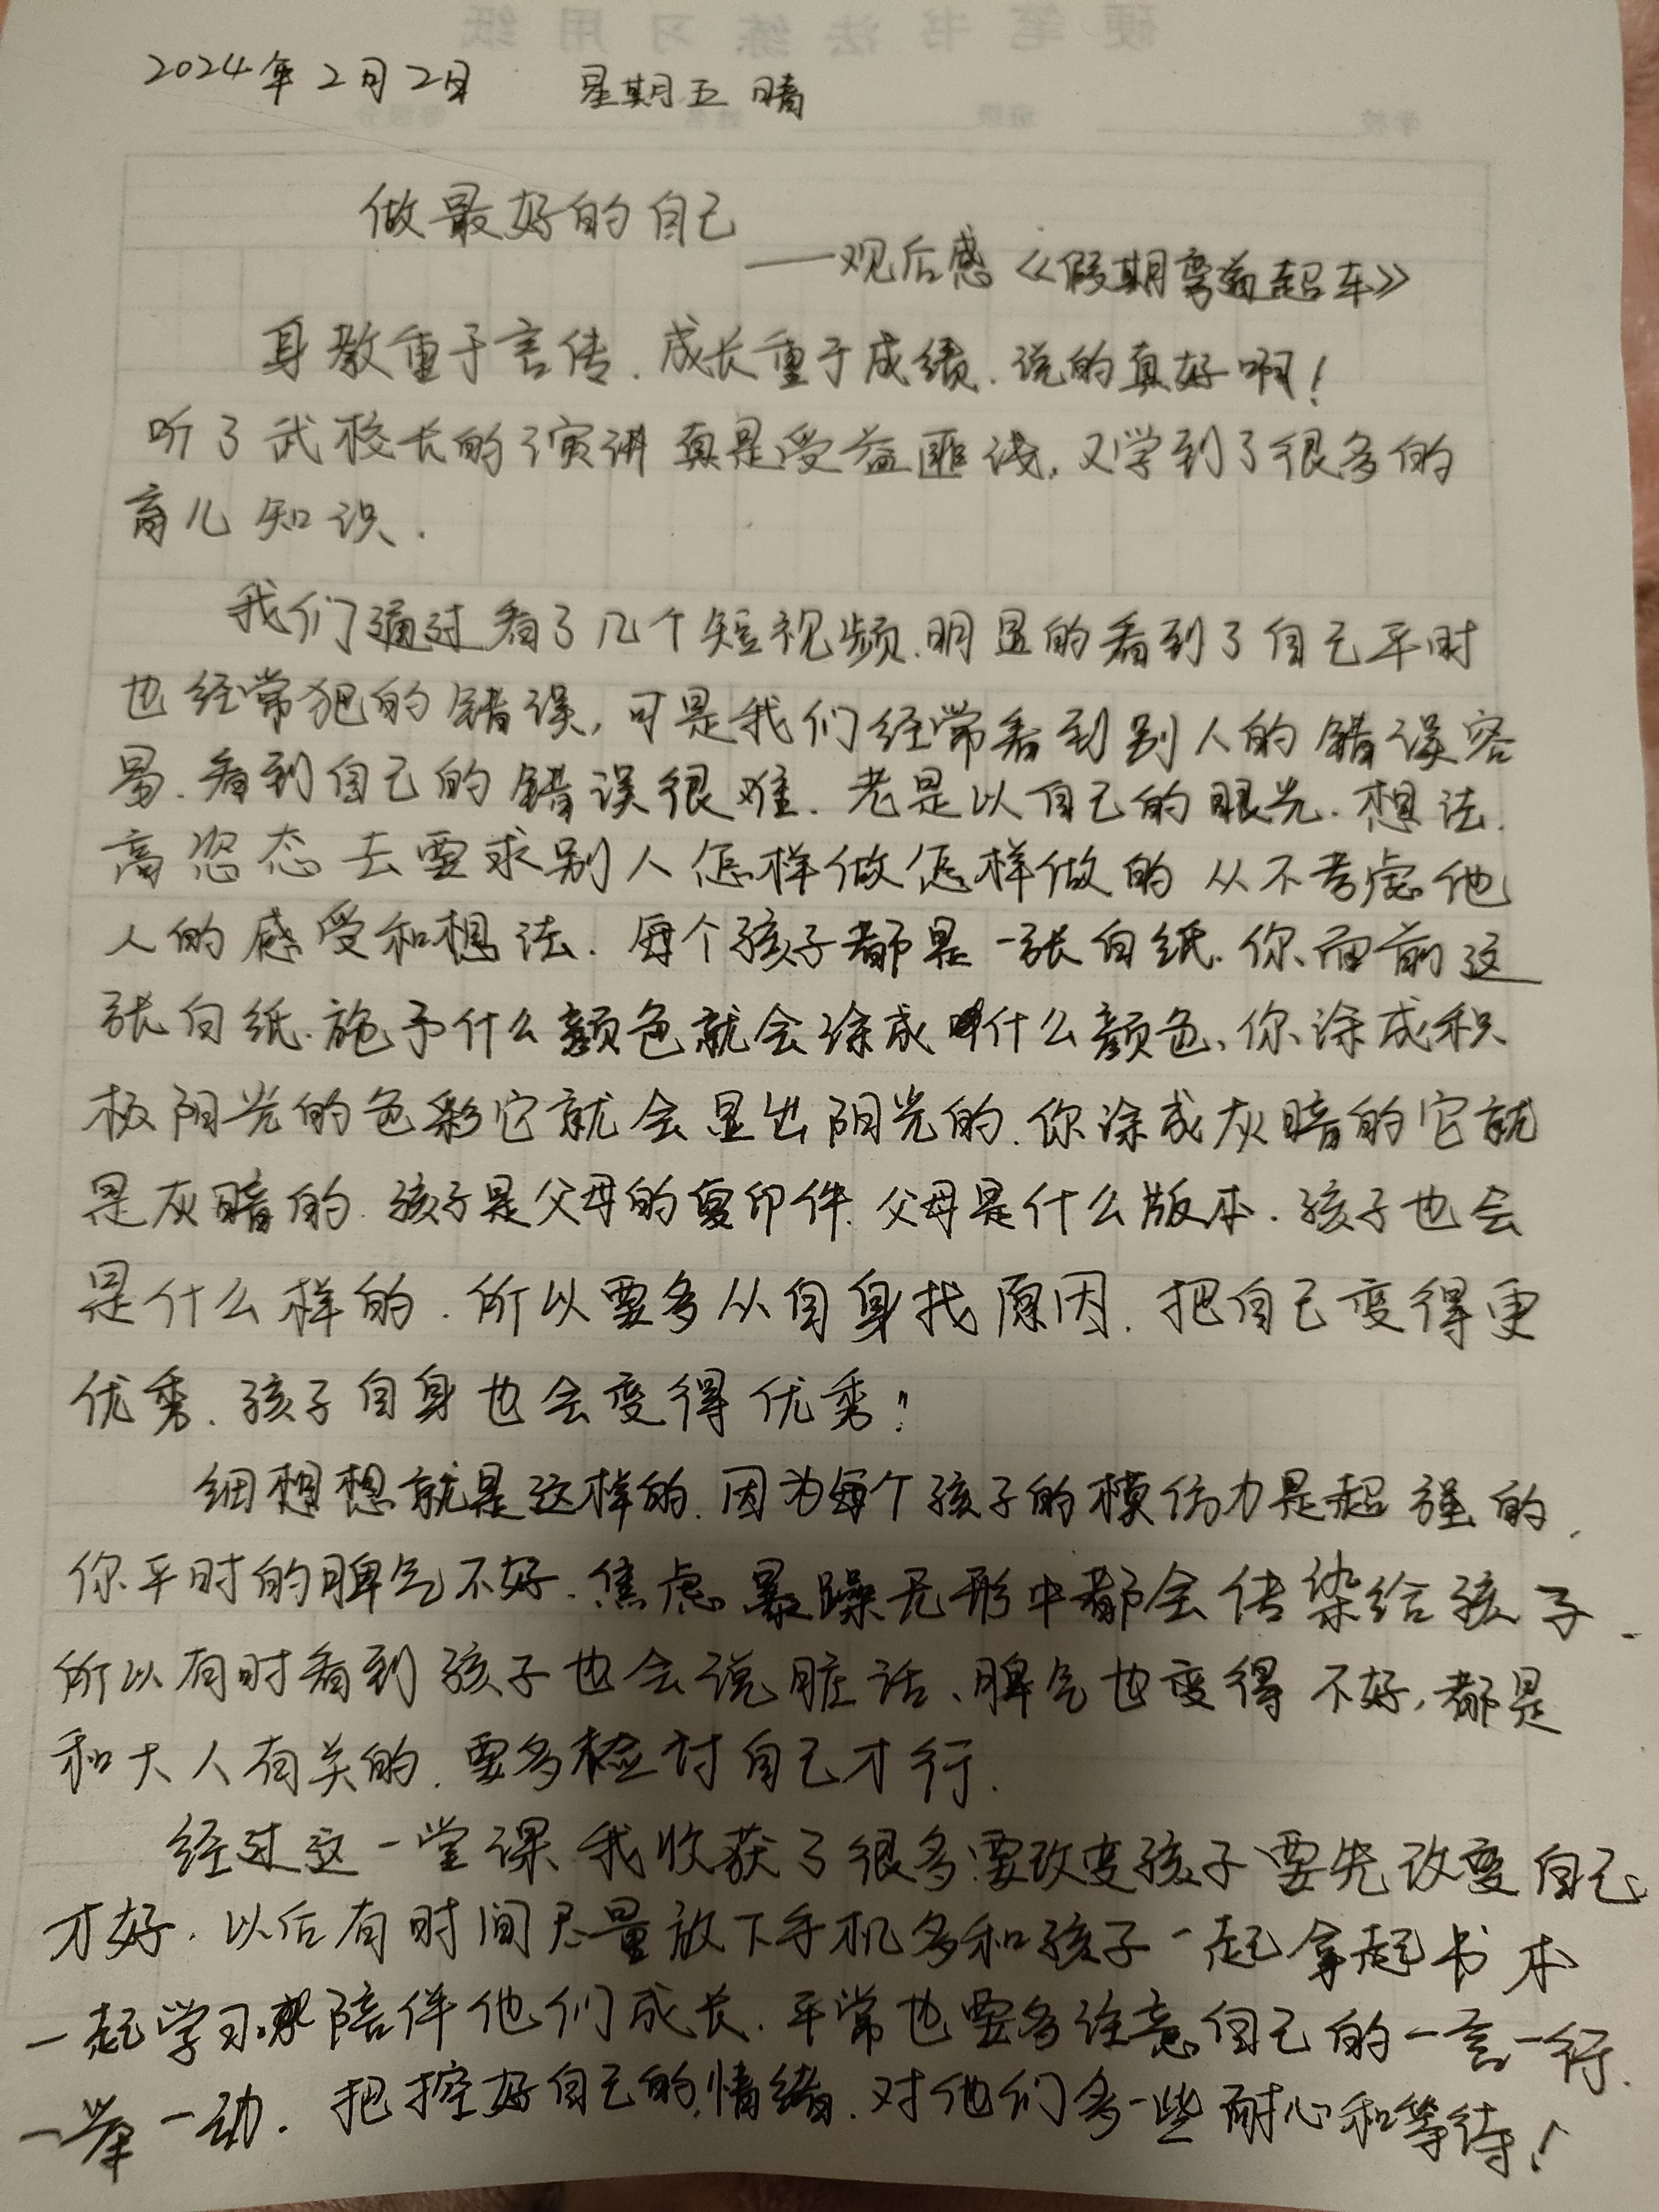 硬笔书法练习用纸
2024年2月2日 星期五 晴
学校 班级 姓名
做最好的自己
——观后感《假期弯道超车》
身教重于言传.成长重于成绩.说的真好啊!
听了武校长的演讲真是受益匪浅,又学到了很多的
育儿知识.
我们通过看了几个短视频.明显的看到了自己平时
也经常犯的错误,可是我们经常看到别人的错误容
易.看到自己的错误很难.老是以自己的眼光.想法.
高恣态去要求别人怎样做怎样做的 从不考虑他
人的感受和想法.每个孩子都是一张白纸.你面前这
张白纸.施予什么颜色就会涂成什么颜色、你涂成积
极阳光的色彩它就会显出阳光的.你涂成灰暗的它就
是灰暗的.孩子是父母的复印件.父母是什么版本.孩子也会
是什么样的.所以要多从自身找原因.把自己变得更
优秀.孩子自身也会变得优秀!
细想想就是这样的.因为每个孩子的模仿力是超强的.
你平时的脾气不好.焦虑.暴躁无形中都会传染给孩子.
所以有时看到孩子也会说脏话、脾气也变得不好,都是
和大人有关的.要多检讨自己才行.
经过这一堂课.我收获了很多.要改变孩子要先改变自己
才好.以后有时间尽量放下手机多和孩子一起拿起书本
一起学习.陪伴他们成长.平常也要多注意自己的一言一行.
一举一动.把控好自己的情绪.对他们多一些耐心和等待!